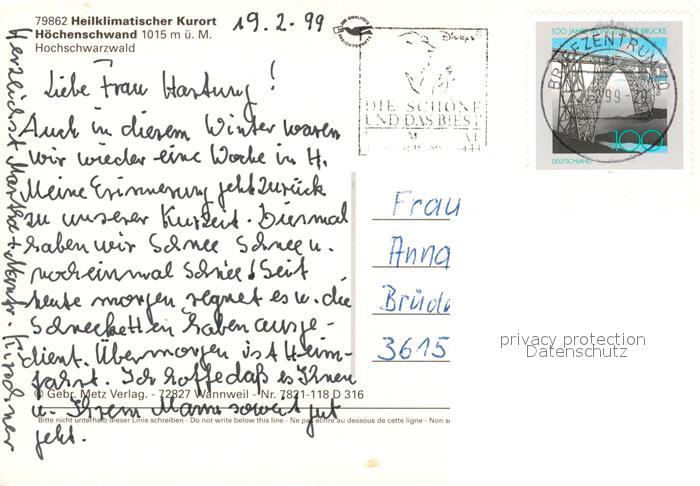 79862 Heilklimatischer Kurort
Höchenschwand 1015 m ü. M.
Hochschwarzwald
19.2.99
100 JAHRE BRÜCKE
BRIEFZENTRUM
99
100
DEUTSCHLAND
Disney
DIE SCHÖNE
UND DAS BIEST
Liebe Frau Hartung!
Auch in diesem Winter waren
wir wieder eine Woche in H.
Meine Erinnerung geht zurück
zu unserer Kurzeit. Diesmal
haben wir Schnee Schnee u.
noch einmal Schnee! Seit
heute morgen regnet es u. die
Schneeketten haben ausge-
dient. Übermorgen ist Heim-
fahrt. Ich hoffe daß es Ihnen
u. Ihrem Mann soweit gut
geht.
Herzlichst Martha + Kirchner
Frau
Anna
Brüd
3615
privacy protection
Datenschutz
© Gebr. Metz Verlag. - 72827 Wannweil - Nr. 7821-118 D 316
Bitte nicht unterhalb dieser Linie schreiben - Do not write below this line - Ne pas écrire au dessous de cette ligne - Non s